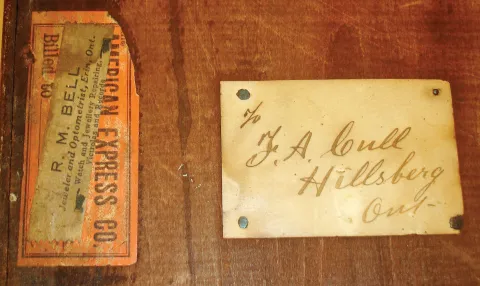 Billed to
R. M. BELL
Jeweler and Optometrist, Erin, Ont.
Watch and Jewellery Repairing,
and Records
AMERICAN EXPRESS CO.
To
F. A. Cull
Hillsberg
Ont-